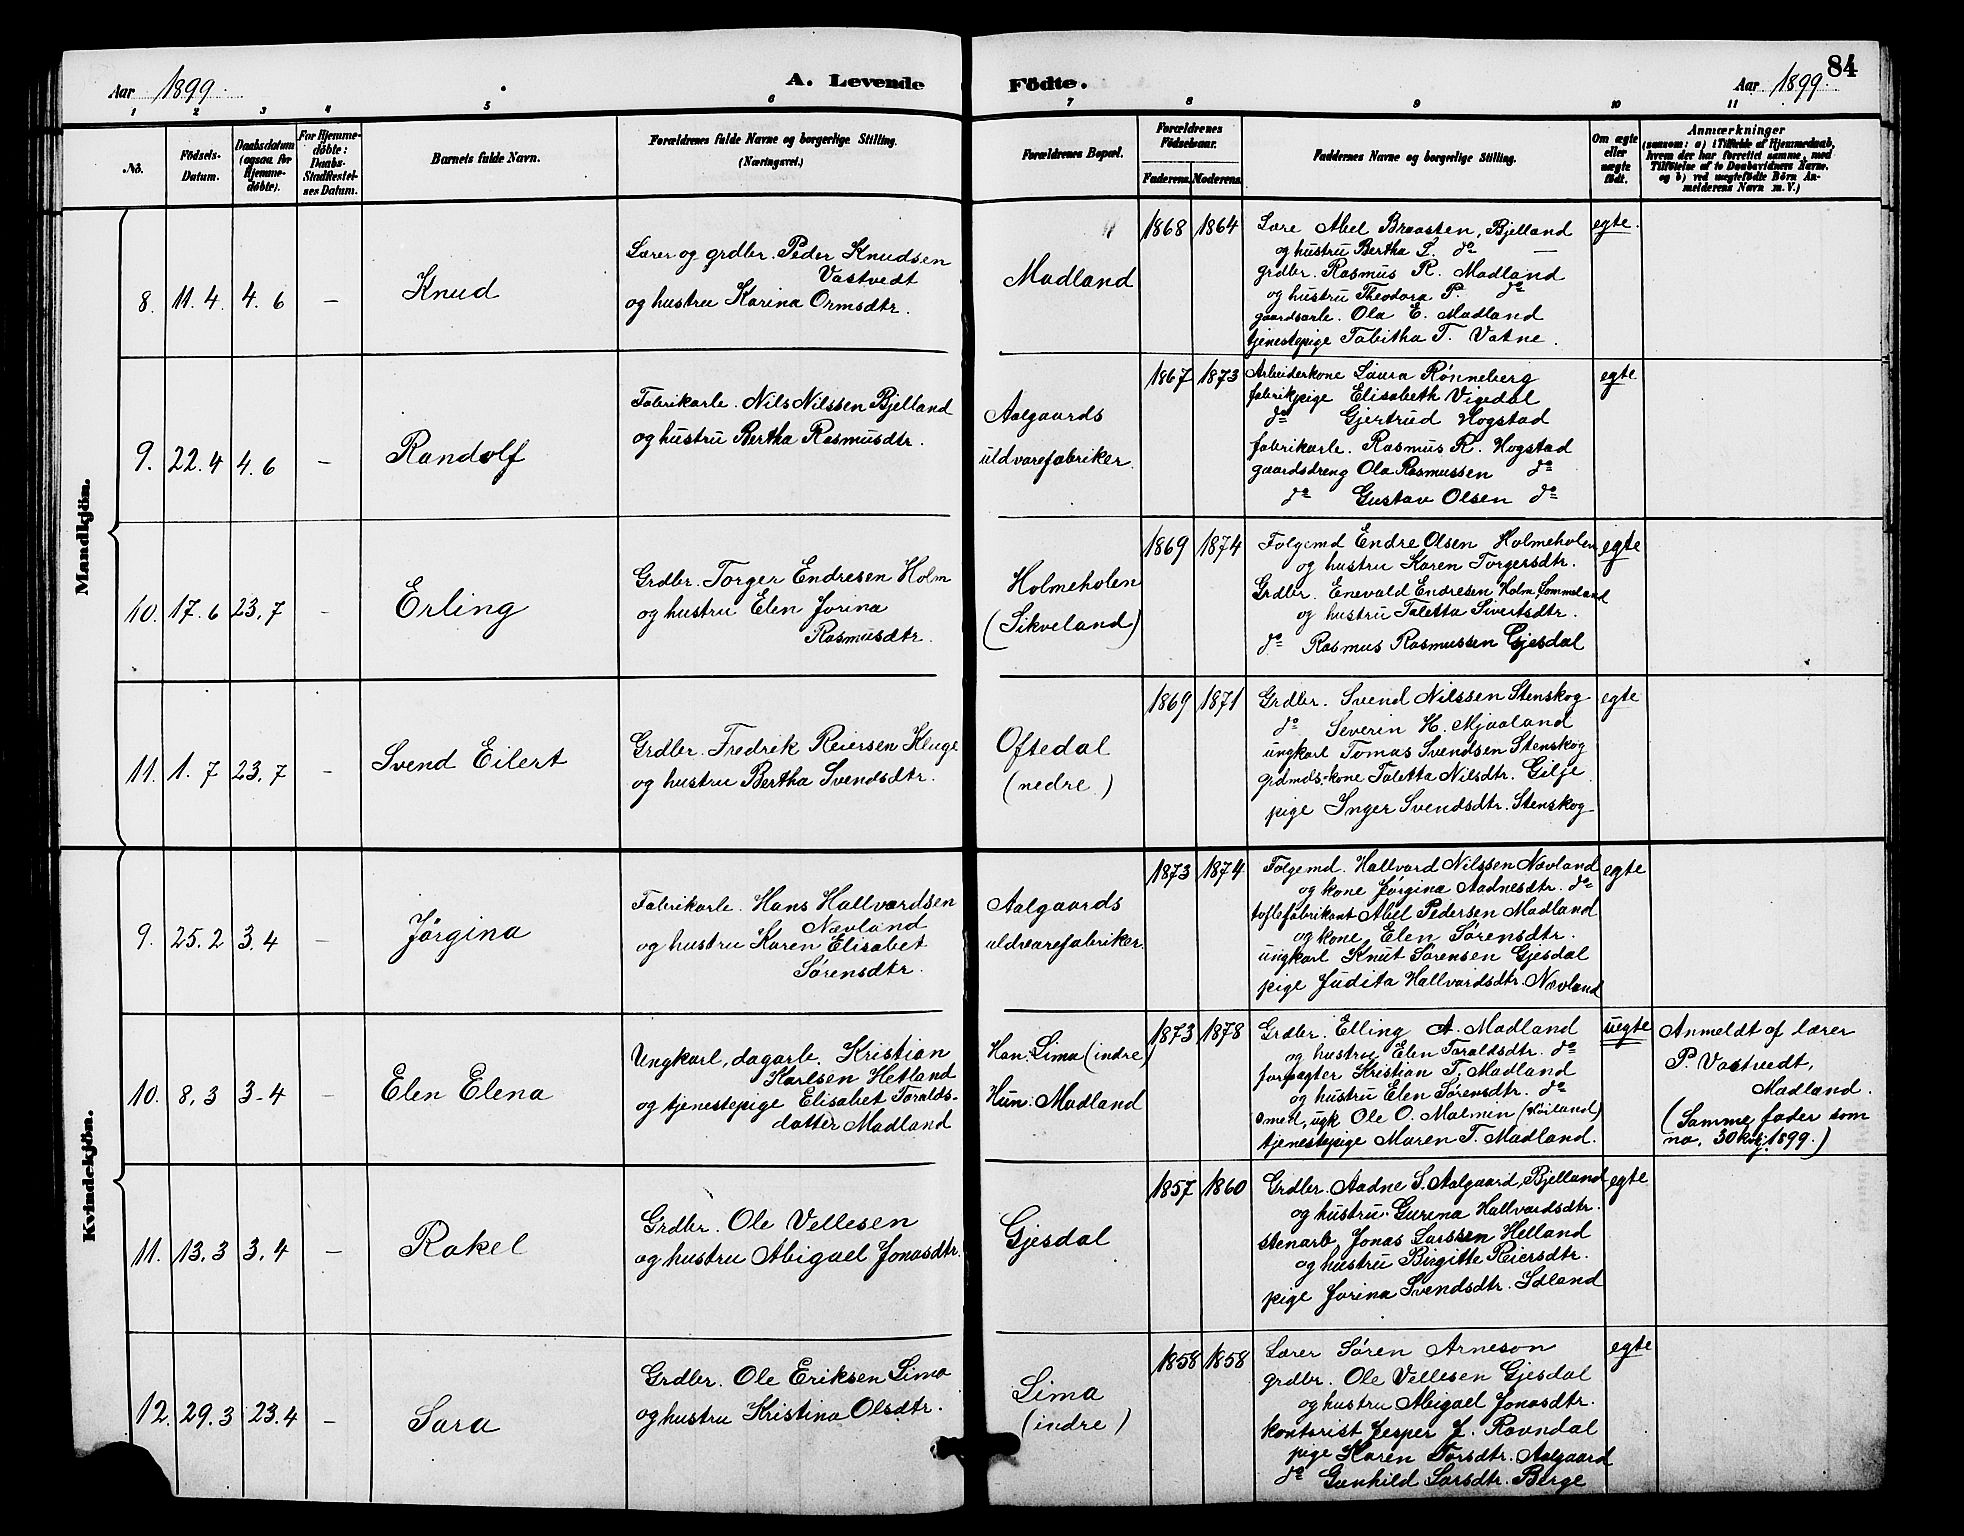 Aar 1899. A. Levende Födte. Aar 1899. 84
1 2 3 4 5 6 7 8 9 10 11
No. Födsels-Datum. Daabsdatum (ogsaa for Hjemmedöbte). For Hjemmedöbte: Daabs-Stadfæstelses Datum. Barnets fulde Navn. Forældrenes fulde Navne og borgerlige Stilling. (Næringsvei.) Forældrenes Bopæl. Forældrenes Födselsaar. Faderens. Moderens. Faddernes Navne og borgerlige Stilling. Om ægte eller uægte födt. Anmærkninger (saasom: a) i Tilfælde af Hjemmedaab, hvem der har forrettet samme, med Tilföielse af to Daabsvidners Navne. og b) ved uægtefödte Börn Anmelderens Navn m. V.)
Mandkjön.
8. 11.4. 4.6 – Knud
Lærer og grdbr. Peder Knudsen
Vastvedt
og hustru Karina Ormsdtr.
Madland
1868 1864
Lære Abel Braasten, Bjelland
og hustru Bertha L. do —
grdbr. Rasmus R. Madland
og hustru Theodora P. do
gaardsarb. Ola E. Madland
tjenestepige Tabitha T. Vatne.
egte.
9. 22.4 4.6 – Randolf
Fabrikarb. Nils Nilssen Bjelland
og hustru Bertha Rasmusdtr.
Aalgaards
uldvarefabriker.
1867 1873
Arbeiderkone Laura Rønneberg
fabrikpige Elisabeth Vigedal
do Gjertrud Hogstad
fabrikarb. Rasmus R. Hogstad
gaardsdreng Ola Rasmussen do
do Gustav Olsen do
egte
10. 17.6 23.7 – Erling
Grdbr. Torger Endresen Holm
og hustru Elen Jorina
Rasmusdtr.
Holmeholen
(Sikveland)
1869 1874
Folgemd Endre Olsen Holmeholen
og hustru Karen Torgersdtr.
Grdbr. Enevald Endresen Holm, Sommeland
og hustru Taletta Sivertsdtr.
do Rasmus Rasmussen Gjesdal
egte
11. 1.7 23.7 – Svend Eilert
Grdbr. Fredrik Reiersen Kluge
og hustru Bertha Svendsdtr.
Oftedal
(nedre)
1869 1871
Grdbr. Svend Nilssen Stenskog
do Severin H. Mjaaland
ungkarl Tomas Svendsen Stenskog
grdmds-kone Taletta Nilsdtr. Gilje
pige Inger Svendsdtr. Stenskog
egte
Kvindekjön.
9. 25.2 3.4 – Jørgina
Fabrikarb. Hans Hallvardsen
Nævland
og hustru Karen Elisabet
Sørensdtr.
Aalgaards
uldvarefabriker.
1873 1874
Folgemd. Hallvard Nilssen Nævland
og kone Jørgina Aadnesdtr. do
tøflefabrikant Abel Pedersen Madland
og kone Elen Sørensdtr.
ungkarl Knut Sørensen Gjesdal
pige Judita Hallvardsdtr. Nævland
egte
10. 8.3 3.4 – Elen Elena
Ungkarl, dagarb. Kristian
Karlsen Hetland
og tjenestepige Elisabet Toralds-
datter Madland
Han: Lima (indre)
Hun: Madland
1873 1878
Grdbr. Elling A. Madland
og hustru Elen Toraldsdtr. do
forpagter Kristian T. Madland
og hustru Elen Sørensdtr. do
smed, ugk Ole O. Malmin (Høiland)
tjenestepige Maren T. Madland.
uegte
Anmeldt af lærer
P. Vastvedt,
Madland.
(Samme fader som
no. 30 kvkj. 1899.)
11. 13.3 3.4 – Rakel
Grdbr. Ole Vellesen
og hustru Abigael Jonasdtr.
Gjesdal
1857 1860
Grdbr. Aadne S. Aalgaard, Bjelland
og hustru Gurina Hallvardsdtr.
stenarb. Jonas Larssen Helland
og hustru Birgitte Reiersdtr.
pige Jorina Svendsdtr. Idland
egte
12. 29.3 23.4 – Sara
Grdbr. Ole Eriksen Lima
og hustru Kristina Olsdtr.
Lima
(indre)
1858 1858
Lærer Søren Arneson
grdbr. Ole Vellesen Gjesdal
og hustru Abigael Jonasdtr.
kontorist Jesper J. Ravndal
pige Karen Torsdtr. Aalgaard
do Gunhild Larsdtr. Berge
egte